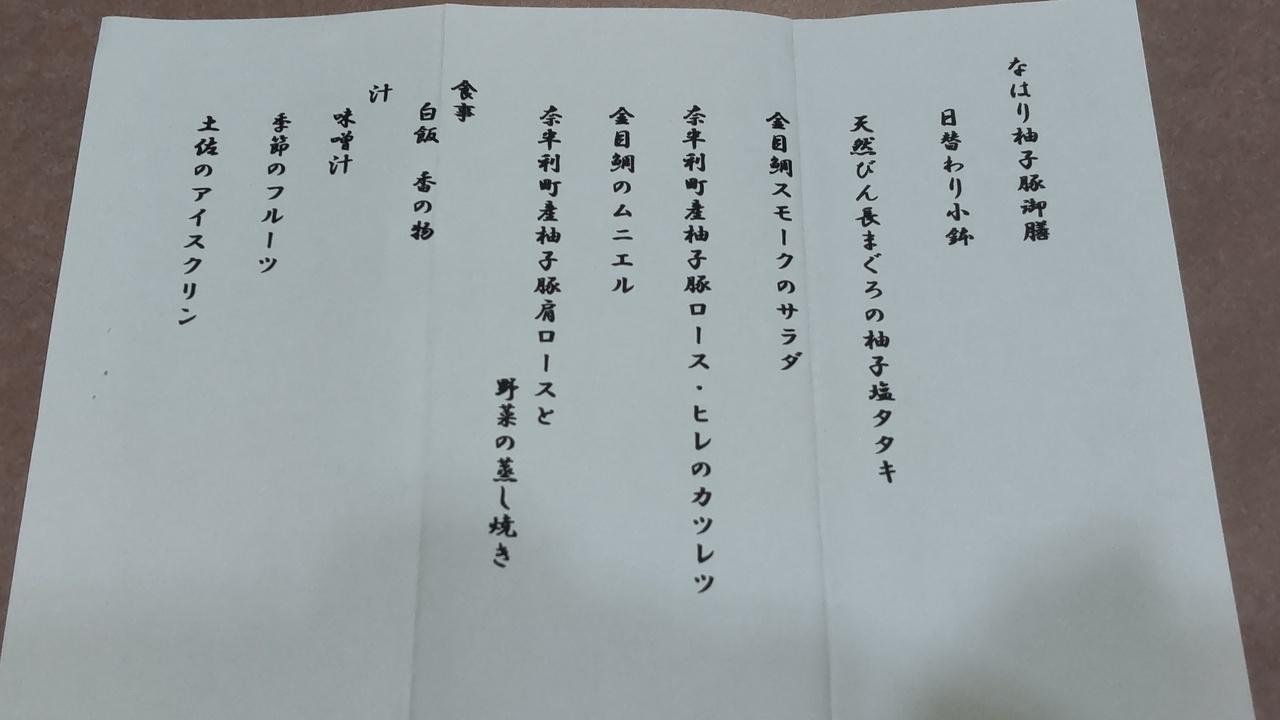 なはり柚子豚御膳
日替わり小鉢
天然びん長まぐろの柚子塩タタキ
金目鯛スモークのサラダ
奈半利町産柚子豚ロース・ヒレのカツレツ
金目鯛のムニエル
奈半利町産柚子豚肩ロースと
野菜の蒸し焼き
食事
白飯　香の物
汁
味噌汁
季節のフルーツ
土佐のアイスクリン